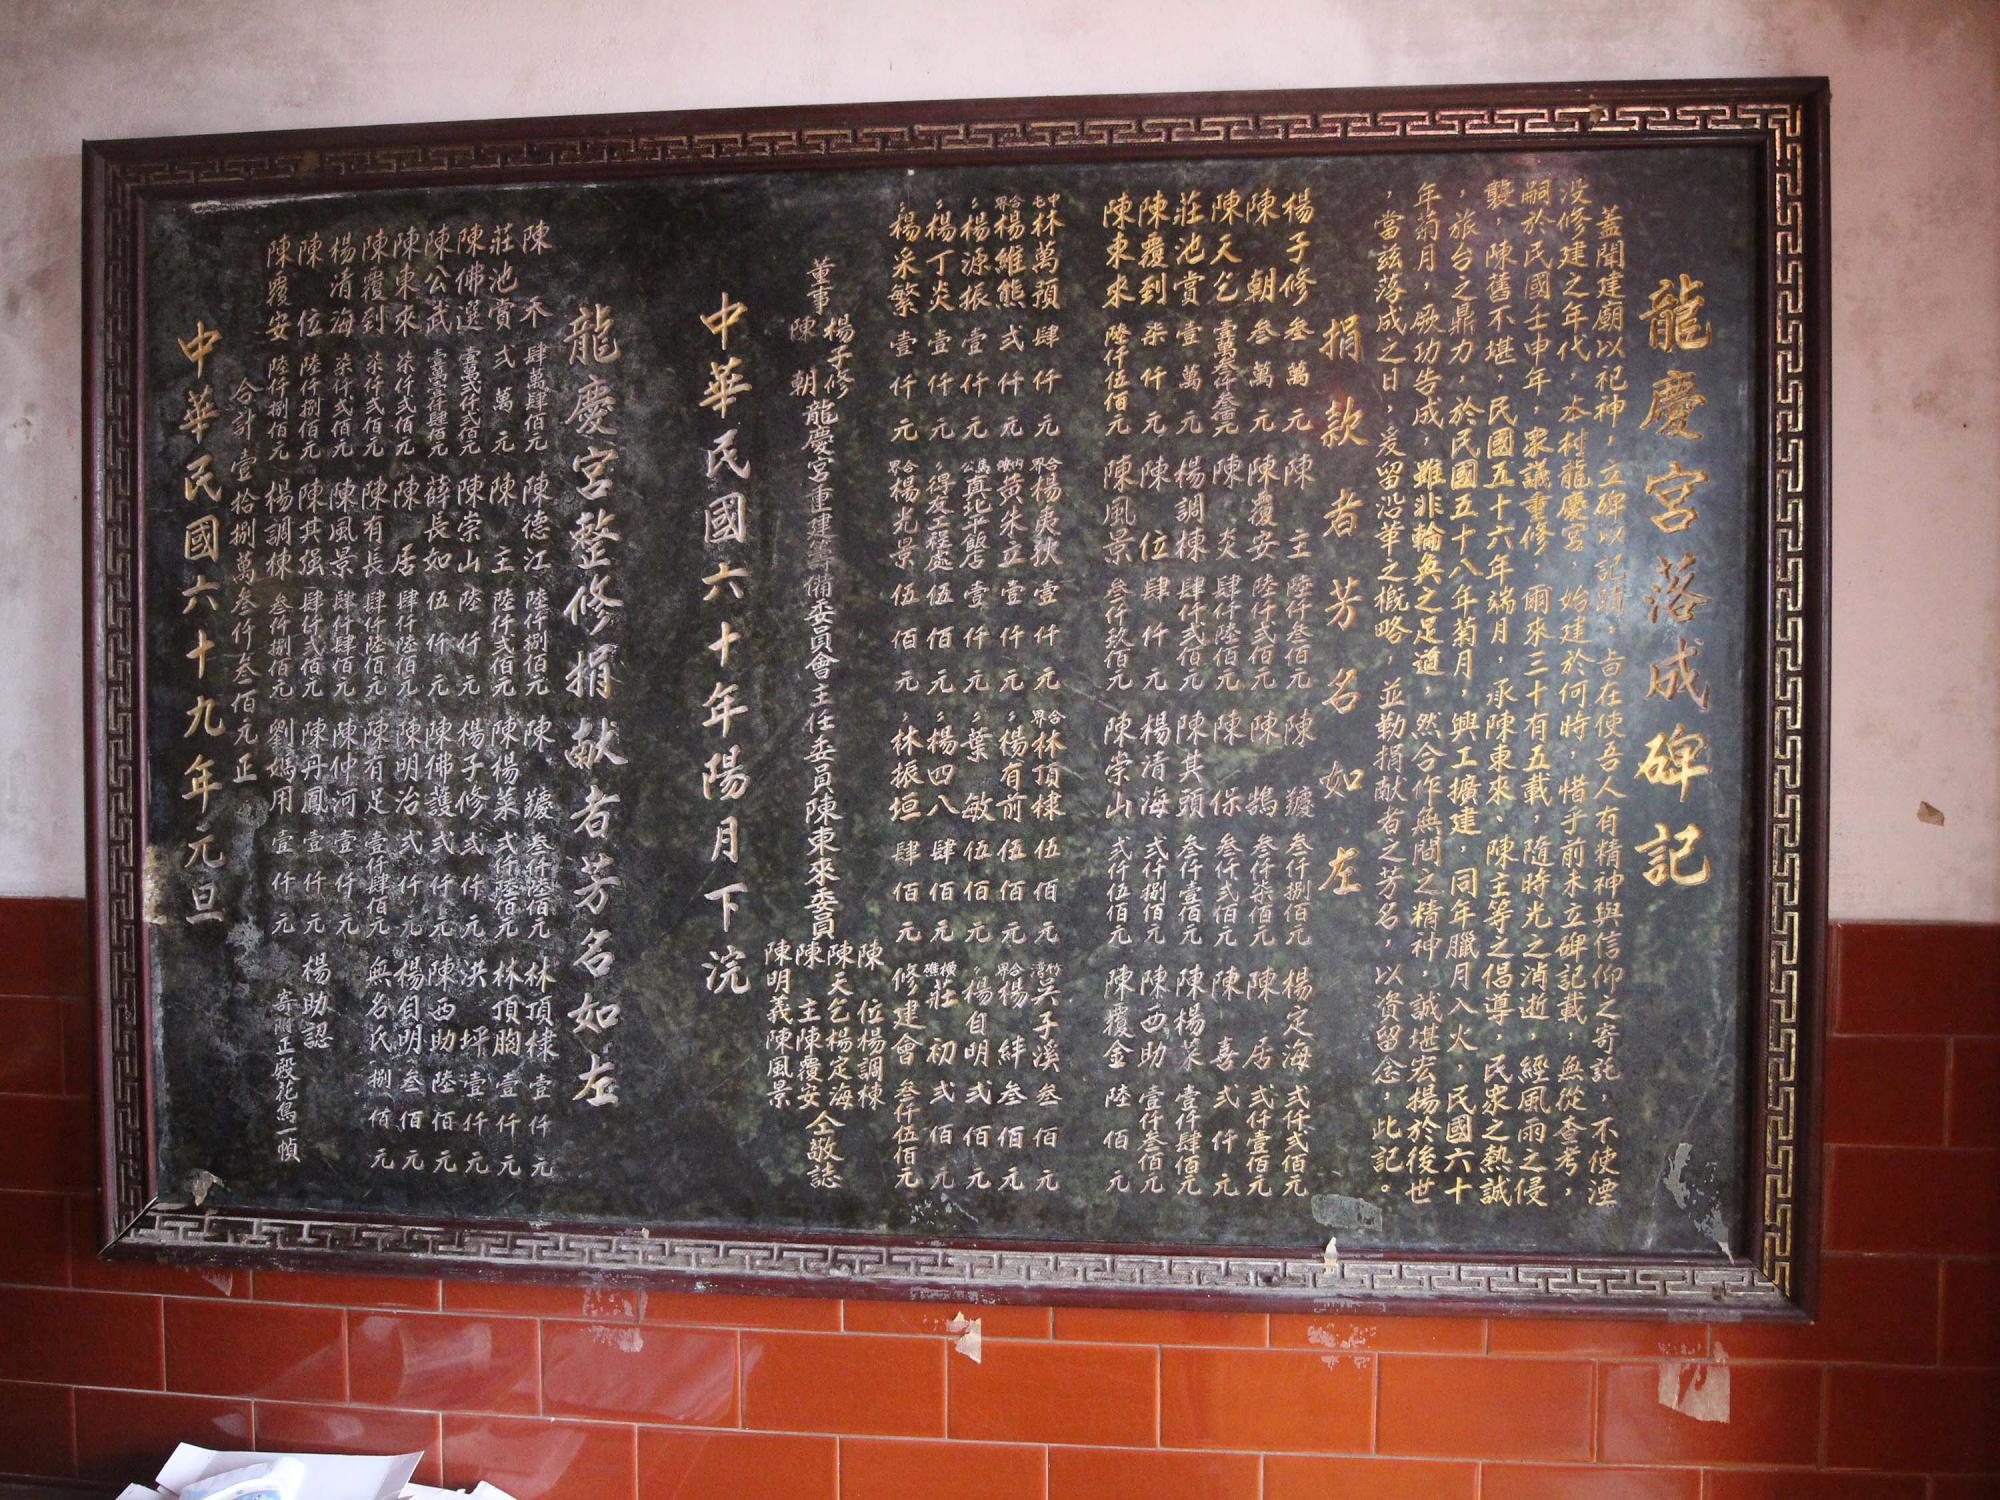 龍慶宮落成碑記
蓋聞建廟以祀神，立碑以記蹟，旨在使吾人有精神與信仰之寄託，不使湮
沒修建之年代，本村龍慶宮，始建於何時，惜乎前未立碑記載，無從查考，
嗣於民國壬申年，衆議重修，爾來三十有五載，隨時光之消逝，經風雨之侵
襲，陳舊不堪，民國五十六年端月，承陳東來、陳主等之倡導，民衆之熱誠
，旅台之鼎力，於民國五十八年菊月，興工擴建，同年臘月入火，民國六十
年菊月，厥功告成，雖非輪奐之足道，然合作無間之精神，誠堪宏揚於後世
，當茲落成之日，爰留沿革之概略，並勒捐献者之芳名，以資留念，此記。
捐款者芳名如左
楊子修叁萬元 陳主陸仟叁佰元 陳鑣叁仟捌佰元 楊定海弍仟弍佰元
陳朝叁萬元 陳覆安陸仟弍佰元 陳鵠叁仟柒佰元 陳居弍仟壹佰元
陳天乞壹萬叁仟叁佰元 陳炎肆仟陸佰元 陳保叁仟弍佰元 陳喜弍仟元
莊池賞壹萬元 楊調棟肆仟弍佰元 陳其頭叁仟壹佰元 陳楊菜壹仟肆佰元
陳覆到柒仟元 陳位肆仟元 楊清海弍仟捌佰元 陳西助壹仟叁佰元
陳東來陸仟伍佰元 陳風景叁仟玖佰元 陳崇山弍仟伍佰元 陳覆金陸佰元
中屯林萬預肆仟元 合界楊夷狄壹仟元 合界林頂棣伍佰元 竹湾吳子溪叁佰元
合界楊維熊弍仟元 黃朱立壹仟元 〃楊有前伍佰元 合界楊絆叁佰元
〃楊源振壹仟元 馬公真北平飯店壹仟元 〃葉敏伍佰元 〃楊自明弍佰元
〃楊丁炎壹仟元 〃得友工程處伍佰元 〃楊四八肆佰元 橫礁莊初弍佰元
〃楊采繁壹仟元 合界楊光景伍佰元 〃林振垣肆佰元 修建會叁仟伍佰元
董事楊子修陳朝龍慶宮重建籌備委員會主任委員陳東來委員陳位楊調棟陳天乞楊定海陳主陳覆安陳明義陳風景仝敬誌
中華民國六十年陽月下浣
龍慶宮整修捐献者芳名如左
陳禾肆萬肆佰元 陳德江陸仟捌佰元 陳鑣叁仟陸佰元 林頂棣壹仟元
莊池賞弍萬元 陳主陸仟弍佰元 陳楊菜弍仟陸佰元 林頂胸壹仟元
陳佛選壹萬弍仟弍佰元 陳崇山陸仟元 楊子修弍仟元 洪坪壹仟元
陳公武壹萬壹仟肆佰元 薛長如伍仟元 陳佛護弍仟元 陳西助陸佰元
陳東來柒仟弍佰元 陳居肆仟陸佰元 陳明治弍仟元 楊自明叁佰元
陳覆到柒仟弍佰元 陳有長肆仟陸佰元 陳有足壹仟肆佰元 無名氏捌佰元
楊清海柒仟弍佰元 陳風景肆仟肆佰元 陳仲河壹仟元
陳位陸仟捌佰元 陳其强肆仟弍佰元 陳丹鳳壹仟元 楊助認
陳覆安陸仟捌佰元 楊調棟叁仟捌佰元 劉媽用壹仟元 寄附正殿花鳥一幀
合計壹拾捌萬叁仟叁佰元正
中華民國六十九年元旦